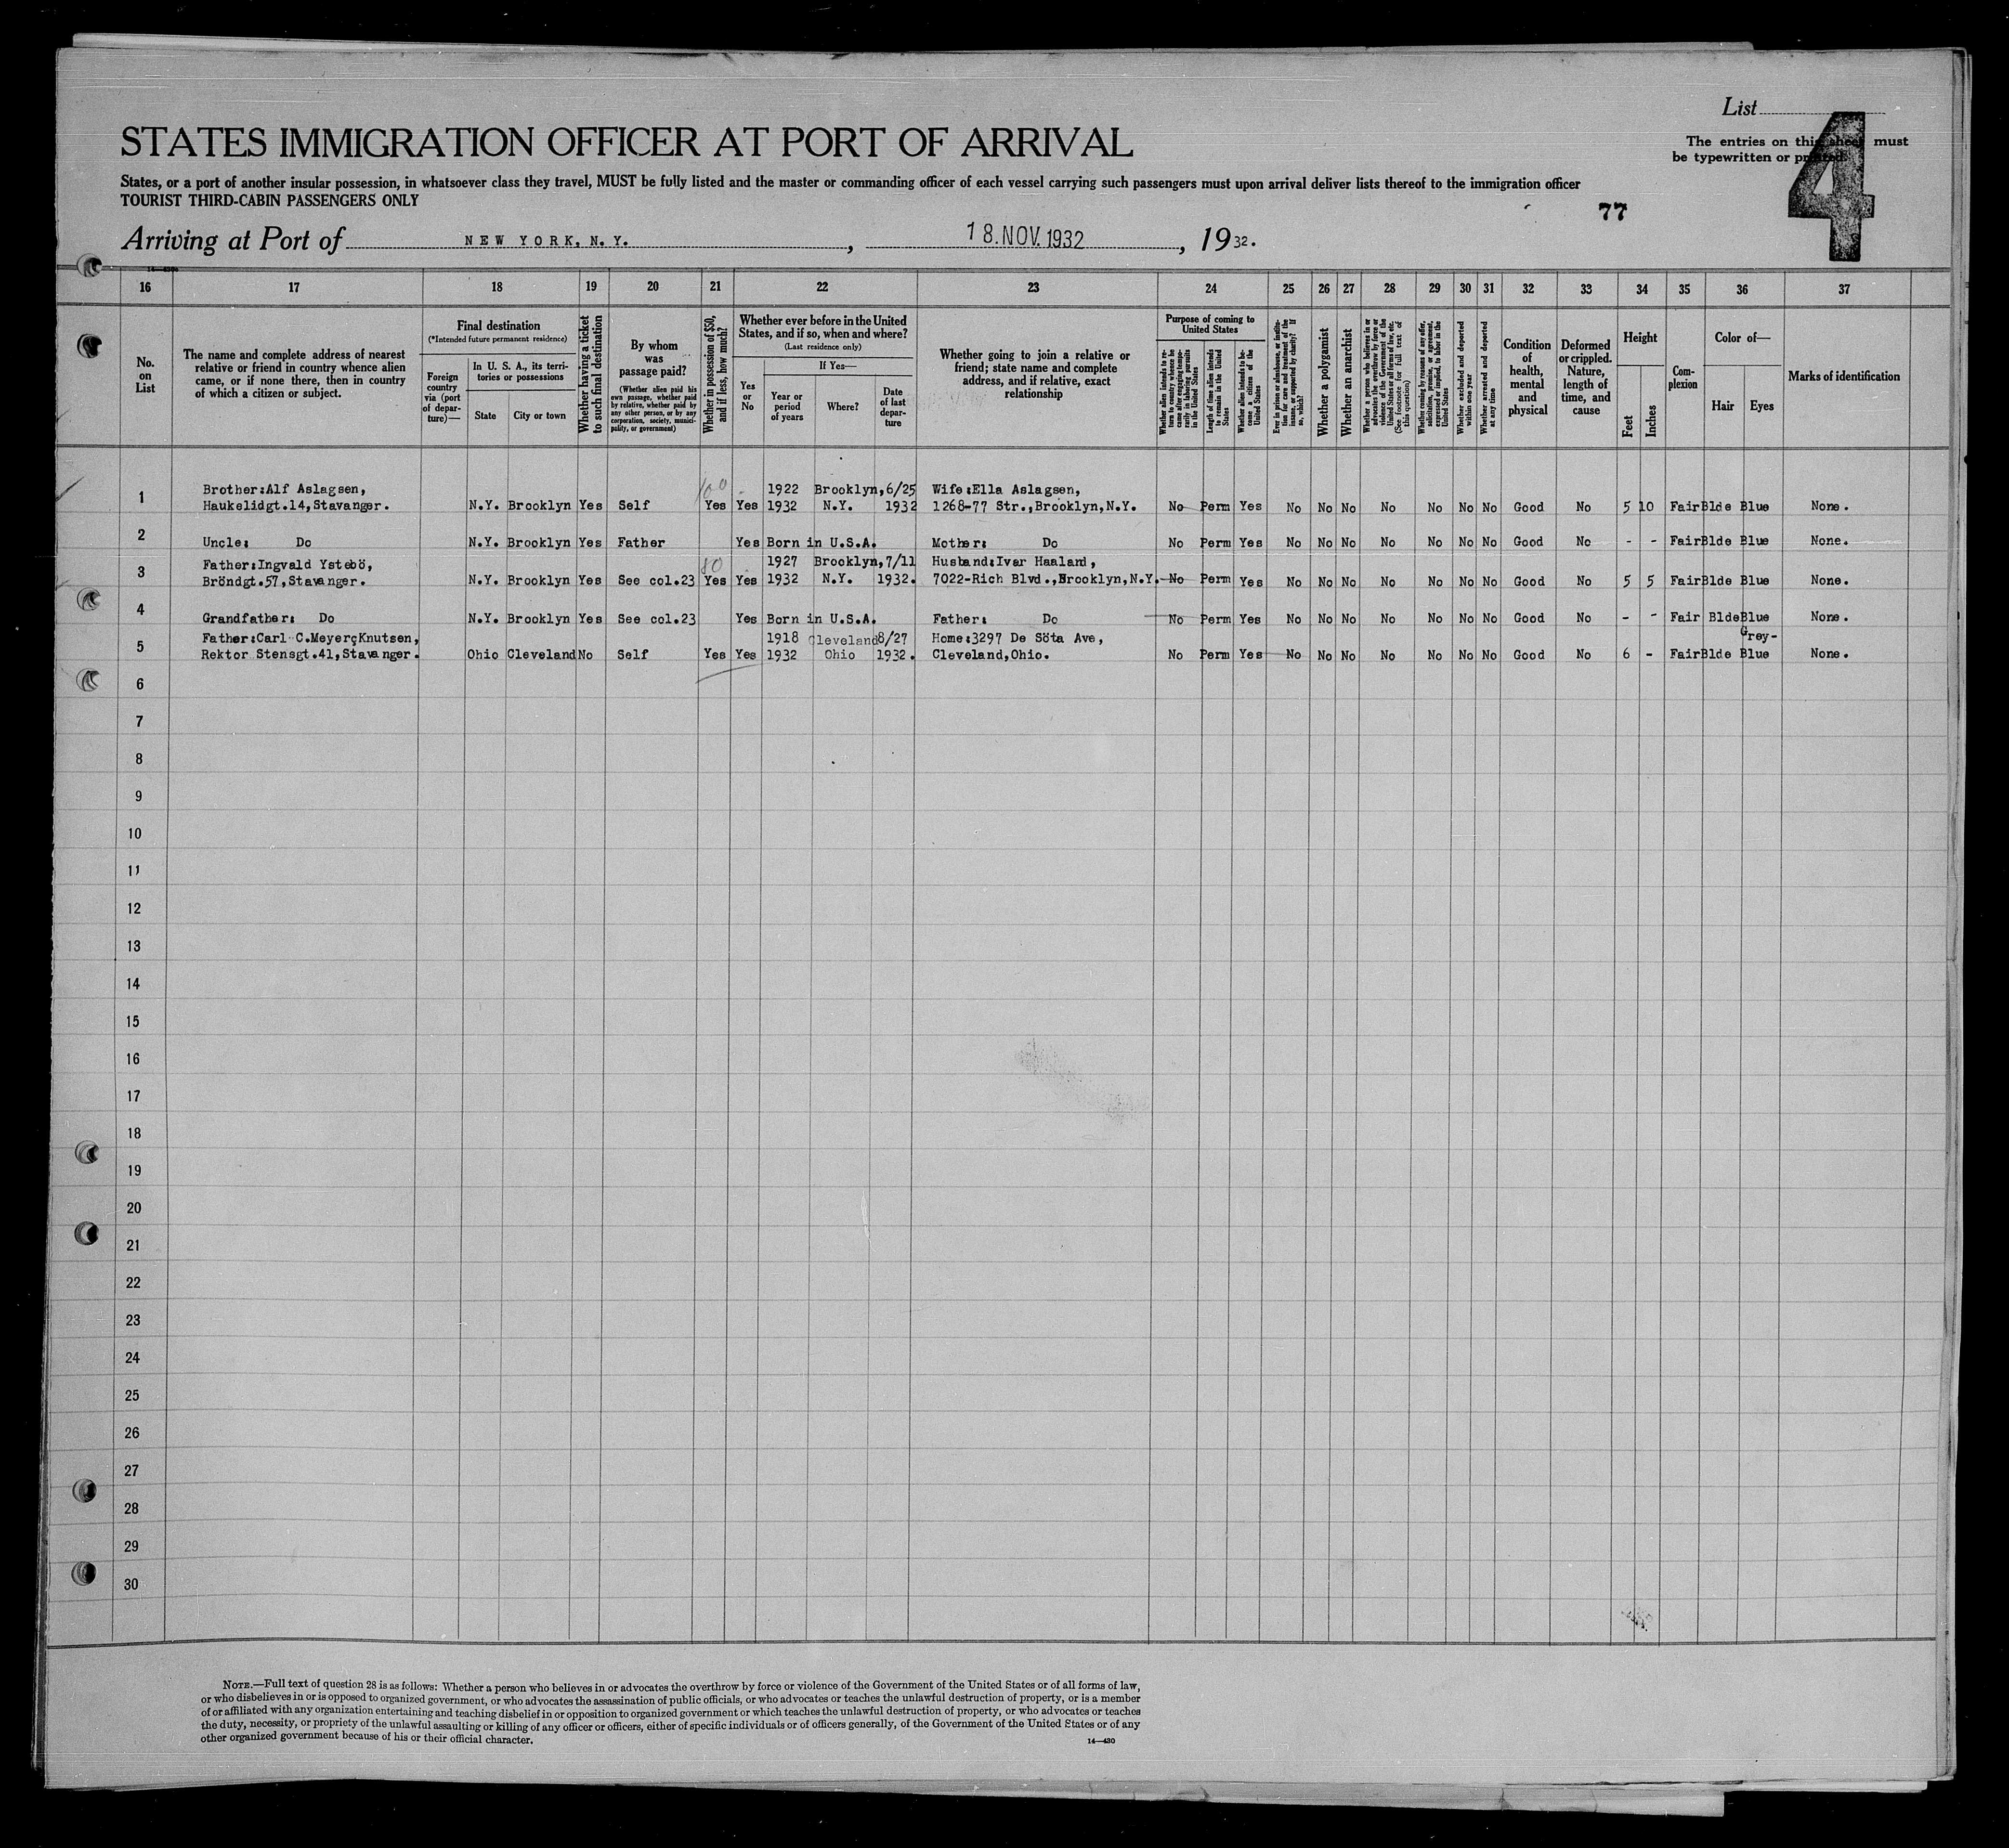 List
4
The entries on this sheet must
be typewritten or printed.
STATES IMMIGRATION OFFICER AT PORT OF ARRIVAL
States, or a port of another insular possession, in whatsoever class they travel, MUST be fully listed and the master or commanding officer of each vessel carrying such passengers must upon arrival deliver lists thereof to the immigration officer
TOURIST THIRD-CABIN PASSENGERS ONLY
77
Arriving at Port of NEW YORK, N. Y. , 18. NOV. 1932 , 19 32.
16 17 18 19 20 21 22 23 24 25 26 27 28 29 30 31 32 33 34 35 36 37
No. on List
The name and complete address of nearest relative or friend in country whence alien came, or if none there, then in country of which a citizen or subject.
Final destination
(*Intended future permanent residence)
Foreign country via (port of departure)—
In U. S. A., its territories or possessions
State
City or town
Whether having a ticket to such final destination
By whom was passage paid?
(Whether alien paid his own passage, whether paid by relative, whether paid by any other person, or by any corporation, society, municipality, or government)
Whether in possession of $50, and if less, how much?
Whether ever before in the United States, and if so, when and where?
(Last residence only)
Yes or No
If Yes—
Year or period of years
Where?
Date of last departure
Whether going to join a relative or friend; state name and complete address, and if relative, exact relationship
Purpose of coming to United States
Whether alien intends to return to country whence he came after engaging temporarily in laboring pursuits in the United States
Length of time alien intends to remain in the United States
Whether alien intends to become a citizen of the United States
Ever in prison or almshouse, or institution for care and treatment of the insane, or supported by charity? If so, which?
Whether a polygamist
Whether an anarchist
Whether a person who believes in or advocates the overthrow by force or violence of the Government of the United States or all forms of law, etc. (See footnote for full text of this question)
Whether coming by reasons of any offer, solicitation, promise, or agreement, expressed or implied, to labor in the United States
Whether excluded and deported within one year
Whether arrested and deported at any time
Condition of health, mental and physical
Deformed or crippled. Nature, length of time, and cause
Height
Feet
Inches
Complexion
Color of—
Hair
Eyes
Marks of identification
Brother:Alf Aslagsen, 100 1922 Brooklyn, 6/25 Wife:Ella Aslagsen,
1 Haukelidgt.14,Stavanger. N.Y. Brooklyn Yes Self Yes Yes 1932 N.Y. 1932 1268-77 Str.,Brooklyn,N.Y. No Perm Yes No No No No No No No Good No 5 10 Fair Blde Blue None.
2 Uncle: Do N.Y. Brooklyn Yes Father Yes Born in U.S.A. Mother: Do No Perm Yes No No No No No No No Good No - - Fair Blde Blue None.
Father:Ingvald Ystebö, 80 1927 Brooklyn, 7/11 Husband:Ivar Haaland,
3 Bröndgt.57,Stavanger. N.Y. Brooklyn Yes See col.23 Yes Yes 1932 N.Y. 1932. 7022-Rich Blvd.,Brooklyn,N.Y. No Perm Yes No No No No No No No Good No 5 5 Fair Blde Blue None.
4 Grandfather: Do N.Y. Brooklyn Yes See col.23 Yes Born in U.S.A. Father: Do No Perm Yes No No No No No No No Good No - - Fair Blde Blue None.
Father:Carl C.Meyer;Knutsen, 1918 Cleveland 8/27 Home:3297 De Söta Ave, Grey-
5 Rektor Stensgt.41,Stavanger. Ohio Cleveland No Self Yes Yes 1932 Ohio 1932. Cleveland,Ohio. No Perm Yes No No No No No No No Good No 6 - Fair Blde Blue None.
6
7
8
9
10
11
12
13
14
15
16
17
18
19
20
21
22
23
24
25
26
27
28
29
30
NOTE.—Full text of question 28 is as follows: Whether a person who believes in or advocates the overthrow by force or violence of the Government of the United States or of all forms of law,
or who disbelieves in or is opposed to organized government, or who advocates the assassination of public officials, or who advocates or teaches the unlawful destruction of property, or is a member
of or affiliated with any organization entertaining and teaching disbelief in or opposition to organized government or which teaches the unlawful destruction of property, or who advocates or teaches
the duty, necessity, or propriety of the unlawful assaulting or killing of any officer or officers, either of specific individuals or of officers generally, of the Government of the United States or of any
other organized government because of his or their official character.
14—430